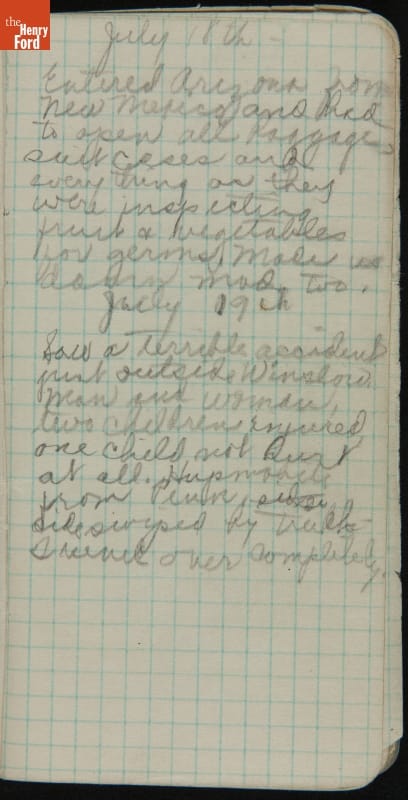 the
Henry
Ford
July 18th -
Entered Arizona from
New Mexico and had
to open all baggage,
suit cases and
everything as they
were inspecting
fruit & vegetables
for germs. Made us
damn mad, too.
July 19th
Saw a terrible accident
just outside Winslow.
Man and woman,
two children injured,
one child not hurt
at all. Hupmobile
from Penn,
sideswiped by truck
& went over completely.